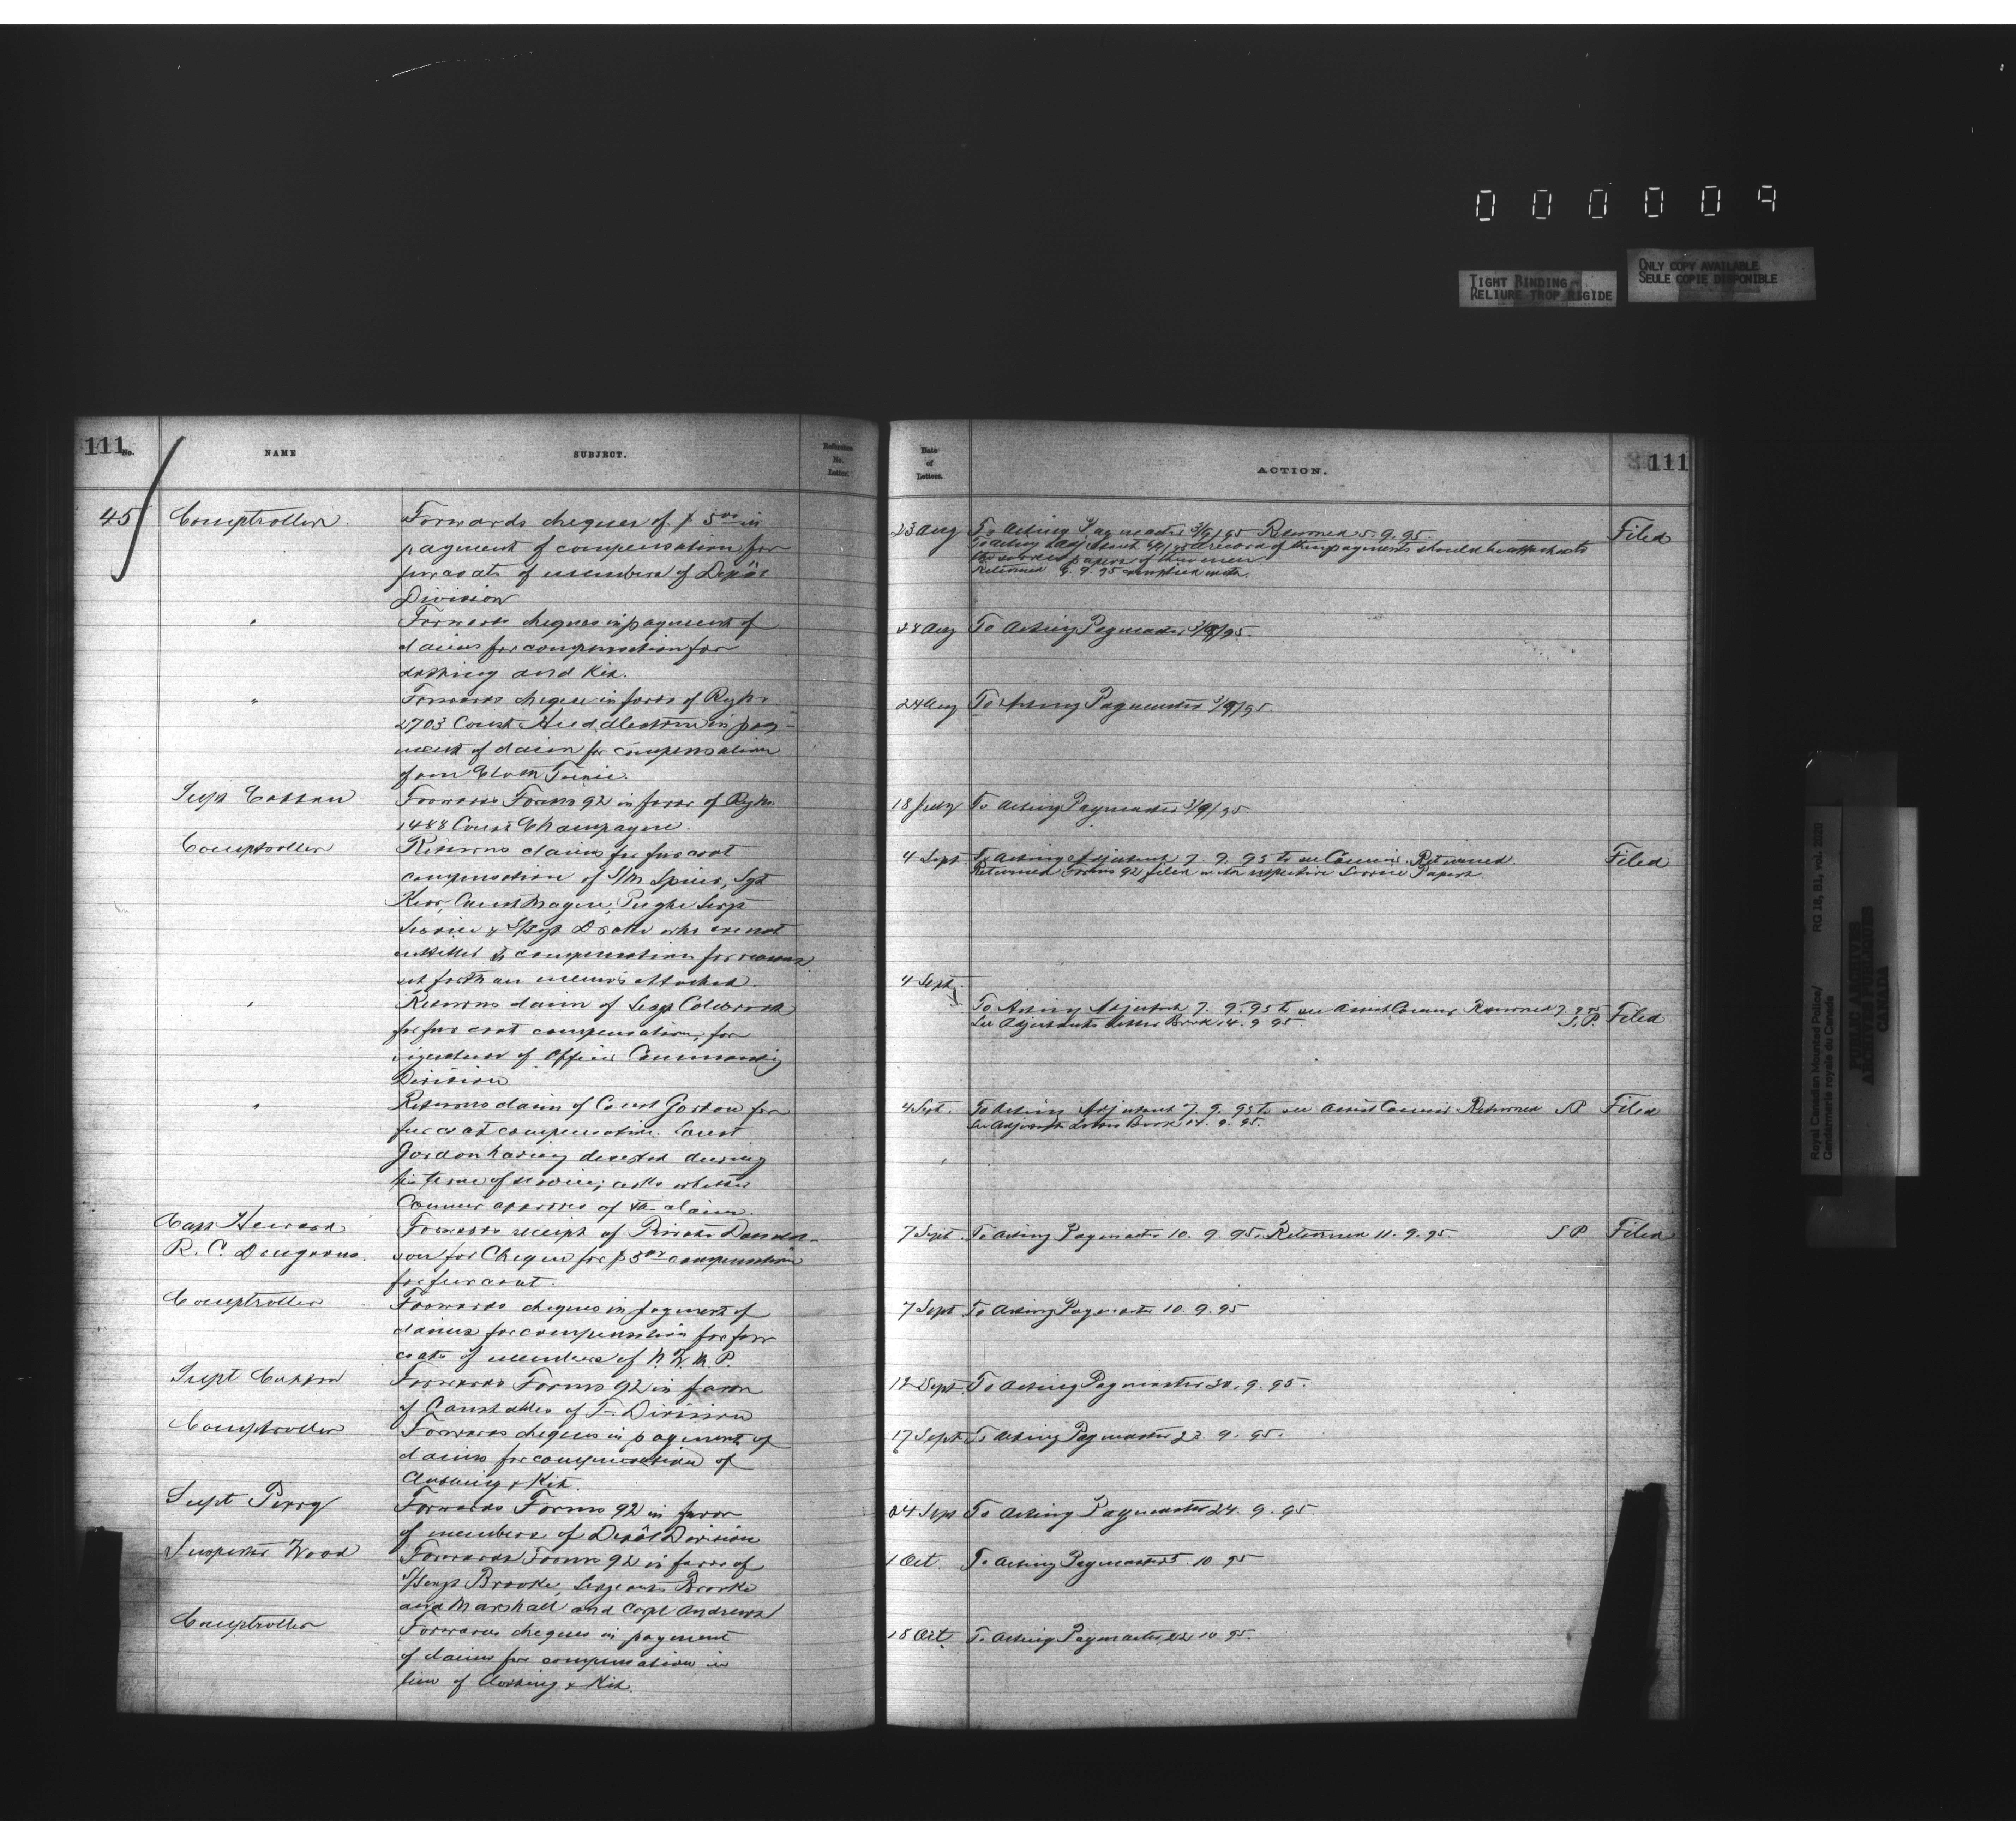 000009
TIGHT BINDING
RELIURE TROP RIGIDE
ONLY COPY AVAILABLE
SEULE COPIE DISPONIBLE
111
No.
NAME
SUBJECT.
Reference
No.
Letter.
45
Comptroller.
Forwards cheques of $5.00 in
payment of compensation for
fur coats of members of Depôt
Division
"
Forwards cheques in payment of
claims for compensation for
clothing and Kit.
"
Forwards cheque in favor of Regtl. No.
2703 Const. Huddlestone in pay-
ment of claim for compensation
of one Cloth Tunic.
Supt Cotton
Forwards Forms 92 in favor of Regtl. No.
1488 Const Champagne.
Comptroller
Returns claims for fur coat
compensation of S/M Spicer, Sgt
Kerr, Const Magee, Pughe Sergt
& S/Sgt who are not
entitled to compensation for reasons
set forth on memos attached.
"
Returns claim of Sergt Colebrook
for fur coat compensation, for
signature of Officer Commanding
Division
"
Returns claim of Const Gordon for
fur coat compensation. Const
Gordon having deserted during
his term of service; asks whether
Commr approves of the claim.
Capt Heward
R. C. Dragoons.
Forwards receipt of Private Donald-
son for Cheque for $5.00 compensation
for fur coat.
Comptroller
Forwards cheques in payment of
claims for compensation for fur
coats of members of N. W. M. P.
Supt Cotton
Forwards Forms 92 in favor
of Constables of Division
Comptroller
Forwards cheques in payment of
claims for compensation of
Clothing & Kit.
Supt Perry
Forwards Forms 92 in favor
of members of Depôt Division
Inspector Wood
Forwards Forms 92 in favor of
S/Sergt Brooke, Sergeants Brooke
and Marshall and Corpl Andrews
Comptroller
Forwards cheques in payment
of claims for compensation in
lieu of Clothing & Kit.
Date
of
Letters.
ACTION.
111
23 Aug
To Acting Paymaster 3/9/95 Returned 5. 9. 95.
Filed
To Acting Adjutant a record of these payments should be attached to
the service papers of these men
Returned 9. 95 complied with.
28 Aug
To Acting Paymaster 3/9/95.
24 Aug
To Acting Paymaster 3/9/95.
18 July
To Acting Paymaster 3/9/95
4 Sept
To Acting Adjutant 7. 9. 95 to see Commr. Returned.
Filed
Returned Forms 92 filed with respective Service Papers.
4 Sept.
To Acting Adjutant 7. 9. 95 to see Assist Commr Returned 7. 9. 95
S. P. Filed
See Adjutants Letter Book 14. 9 95
4 Sept.
To Acting Adjutant 7. 9. 95 to see Assist Commr Returned SP Filed
See Adjutants Letter Book 14. 9. 95.
7 Sept.
To Acting Paymaster 10. 9. 95. Returned 11. 9. 95. S P Filed
7 Sept
To Acting Paymaster 10. 9. 95
12 Sept.
To Acting Paymaster 20. 9. 95.
17 Sept
To Acting Paymaster 23. 9. 95.
24 Sept
To Acting Paymaster 24. 9. 95
1 Oct.
To Acting Paymaster 5 10 95
18 Oct.
To Acting Paymaster 22 10 95.
Royal Canadian Mounted Police/
Gendarmerie royale du Canada
RG 18, B1, vol. 2220
PUBLIC ARCHIVES
ARCHIVES PUBLIQUES
CANADA